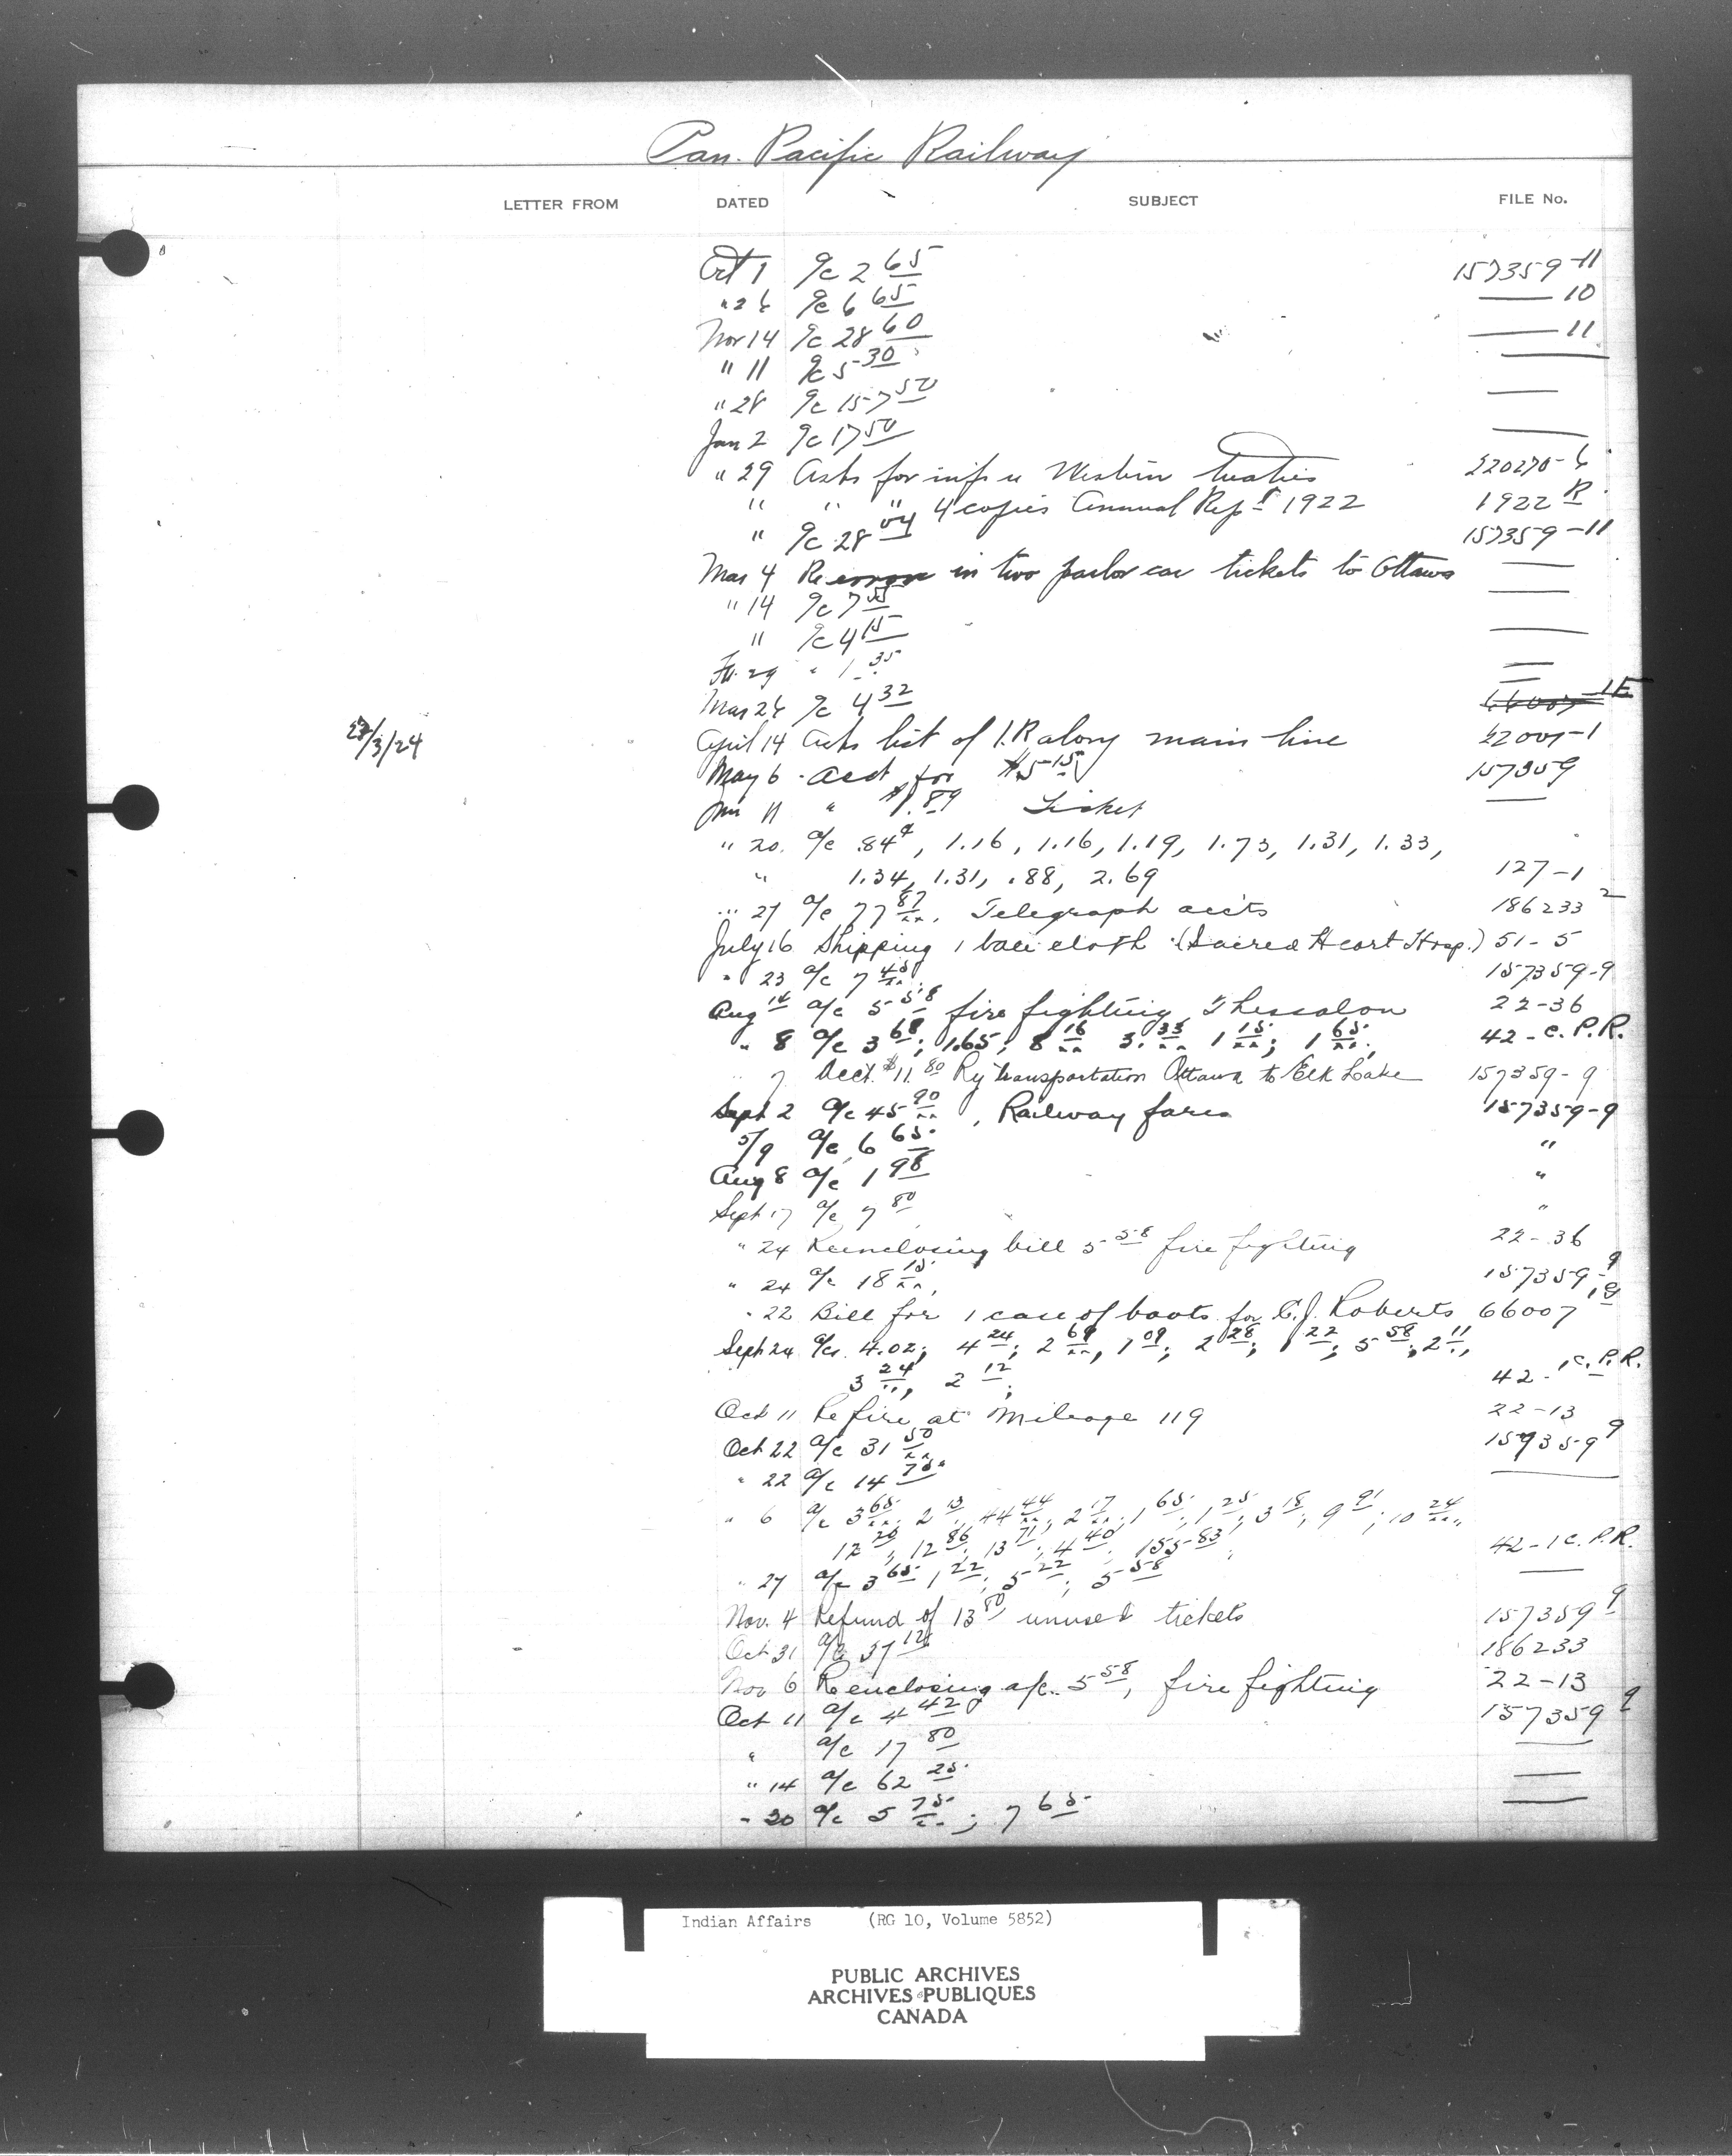 Can. Pacific Railway
LETTER FROM DATED SUBJECT FILE No.
Oct 1 a/c 2 65 157359-11
" 26 a/c 6 65 —— 10
Nov 14 a/c 28 60 —— 11
" 11 a/c 5 30 ——
" 28 a/c 157 50 ——
Jan 2 a/c 17 50 ——
" 29 Asks for inf. re Western treaties 220270-6
" " " 4 copies Annual Rept 1922 1922 R
" a/c 28 04 157359-11
Mar 4 Re error in two parlor car tickets to Ottawa ——
" 14 a/c 7 55 ——
" a/c 4 15 ——
Feb. 29 " 1.35 ——
Mar 26 a/c 4 32
23/3/24 April 14 Asks list of I.R along main line 22007-1
May 6 acct for $5 15 157359
Jun 11 " $1.89 Ticket ——
" 20. a/c .84¢, 1.16, 1.16, 1.19, 1.73, 1.31, 1.33,
" 1.34, 1.31, .88, 2.69 127-1
" 27 a/c 77 87, Telegraph accts 186233 2
July 16 Shipping 1 bale cloth (Sacred Heart Hosp.) 51-5
" 23 a/c 7 45 157359-9
Aug 14 a/c 5 58 fire fighting, Thessalon 22-36
" 8 a/c 3 68; 1.65; 8 16 3.33 1 15; 1 65; 42-C.P.R.
7 Acct. $11.80 Ry transportation Ottawa to Elk Lake 157359-9
Sept 2 a/c 45 90, Railway fares 157359-9
5/9 a/c 6 65 "
Aug 8 a/c 1 98 "
Sept 17 a/c 7 80 "
" 24 Re enclosing bill 5 58 fire fighting 22-36
" 24 a/c 18 15, 157359-9
" 22 Bill for 1 case of boots for C.J. Roberts 66007
Sept 24 a/cs. 4.02; 4 24; 2 69, 1 09; 2 28; 1 22; 5 58; 2 11,
3 24, 2 12; 42-1 C.P.R.
Oct 11 Re fire at Mileage 119 22-13
Oct 22 a/c 31 50 157359 9
" 22 a/c 14 75 ——
" 6 a/c 3 65; 2 13; 44 44; 2 17; 1 65; 1 25; 3 18; 9 91; 10 24
12 20; 12 86; 13 71; 4 40; 155 83; 42-1 C.P.R.
" 27 a/c 3 65 1 22; 5 22; 5 58 ——
Nov. 4 Refund of 13 80 unused tickets 157359 9
Oct 31 a/c 37 12 186233
Nov 6 Re enclosing a/c. 5 58, fire fighting 22-13
Oct 11 a/c 4 42 157359 9
" a/c 17 80 ——
" 14 a/c 62 25 ——
" 20 a/c 5 75; 7 65 ——
Indian Affairs (RG 10, Volume 5852)
PUBLIC ARCHIVES
ARCHIVES PUBLIQUES
CANADA